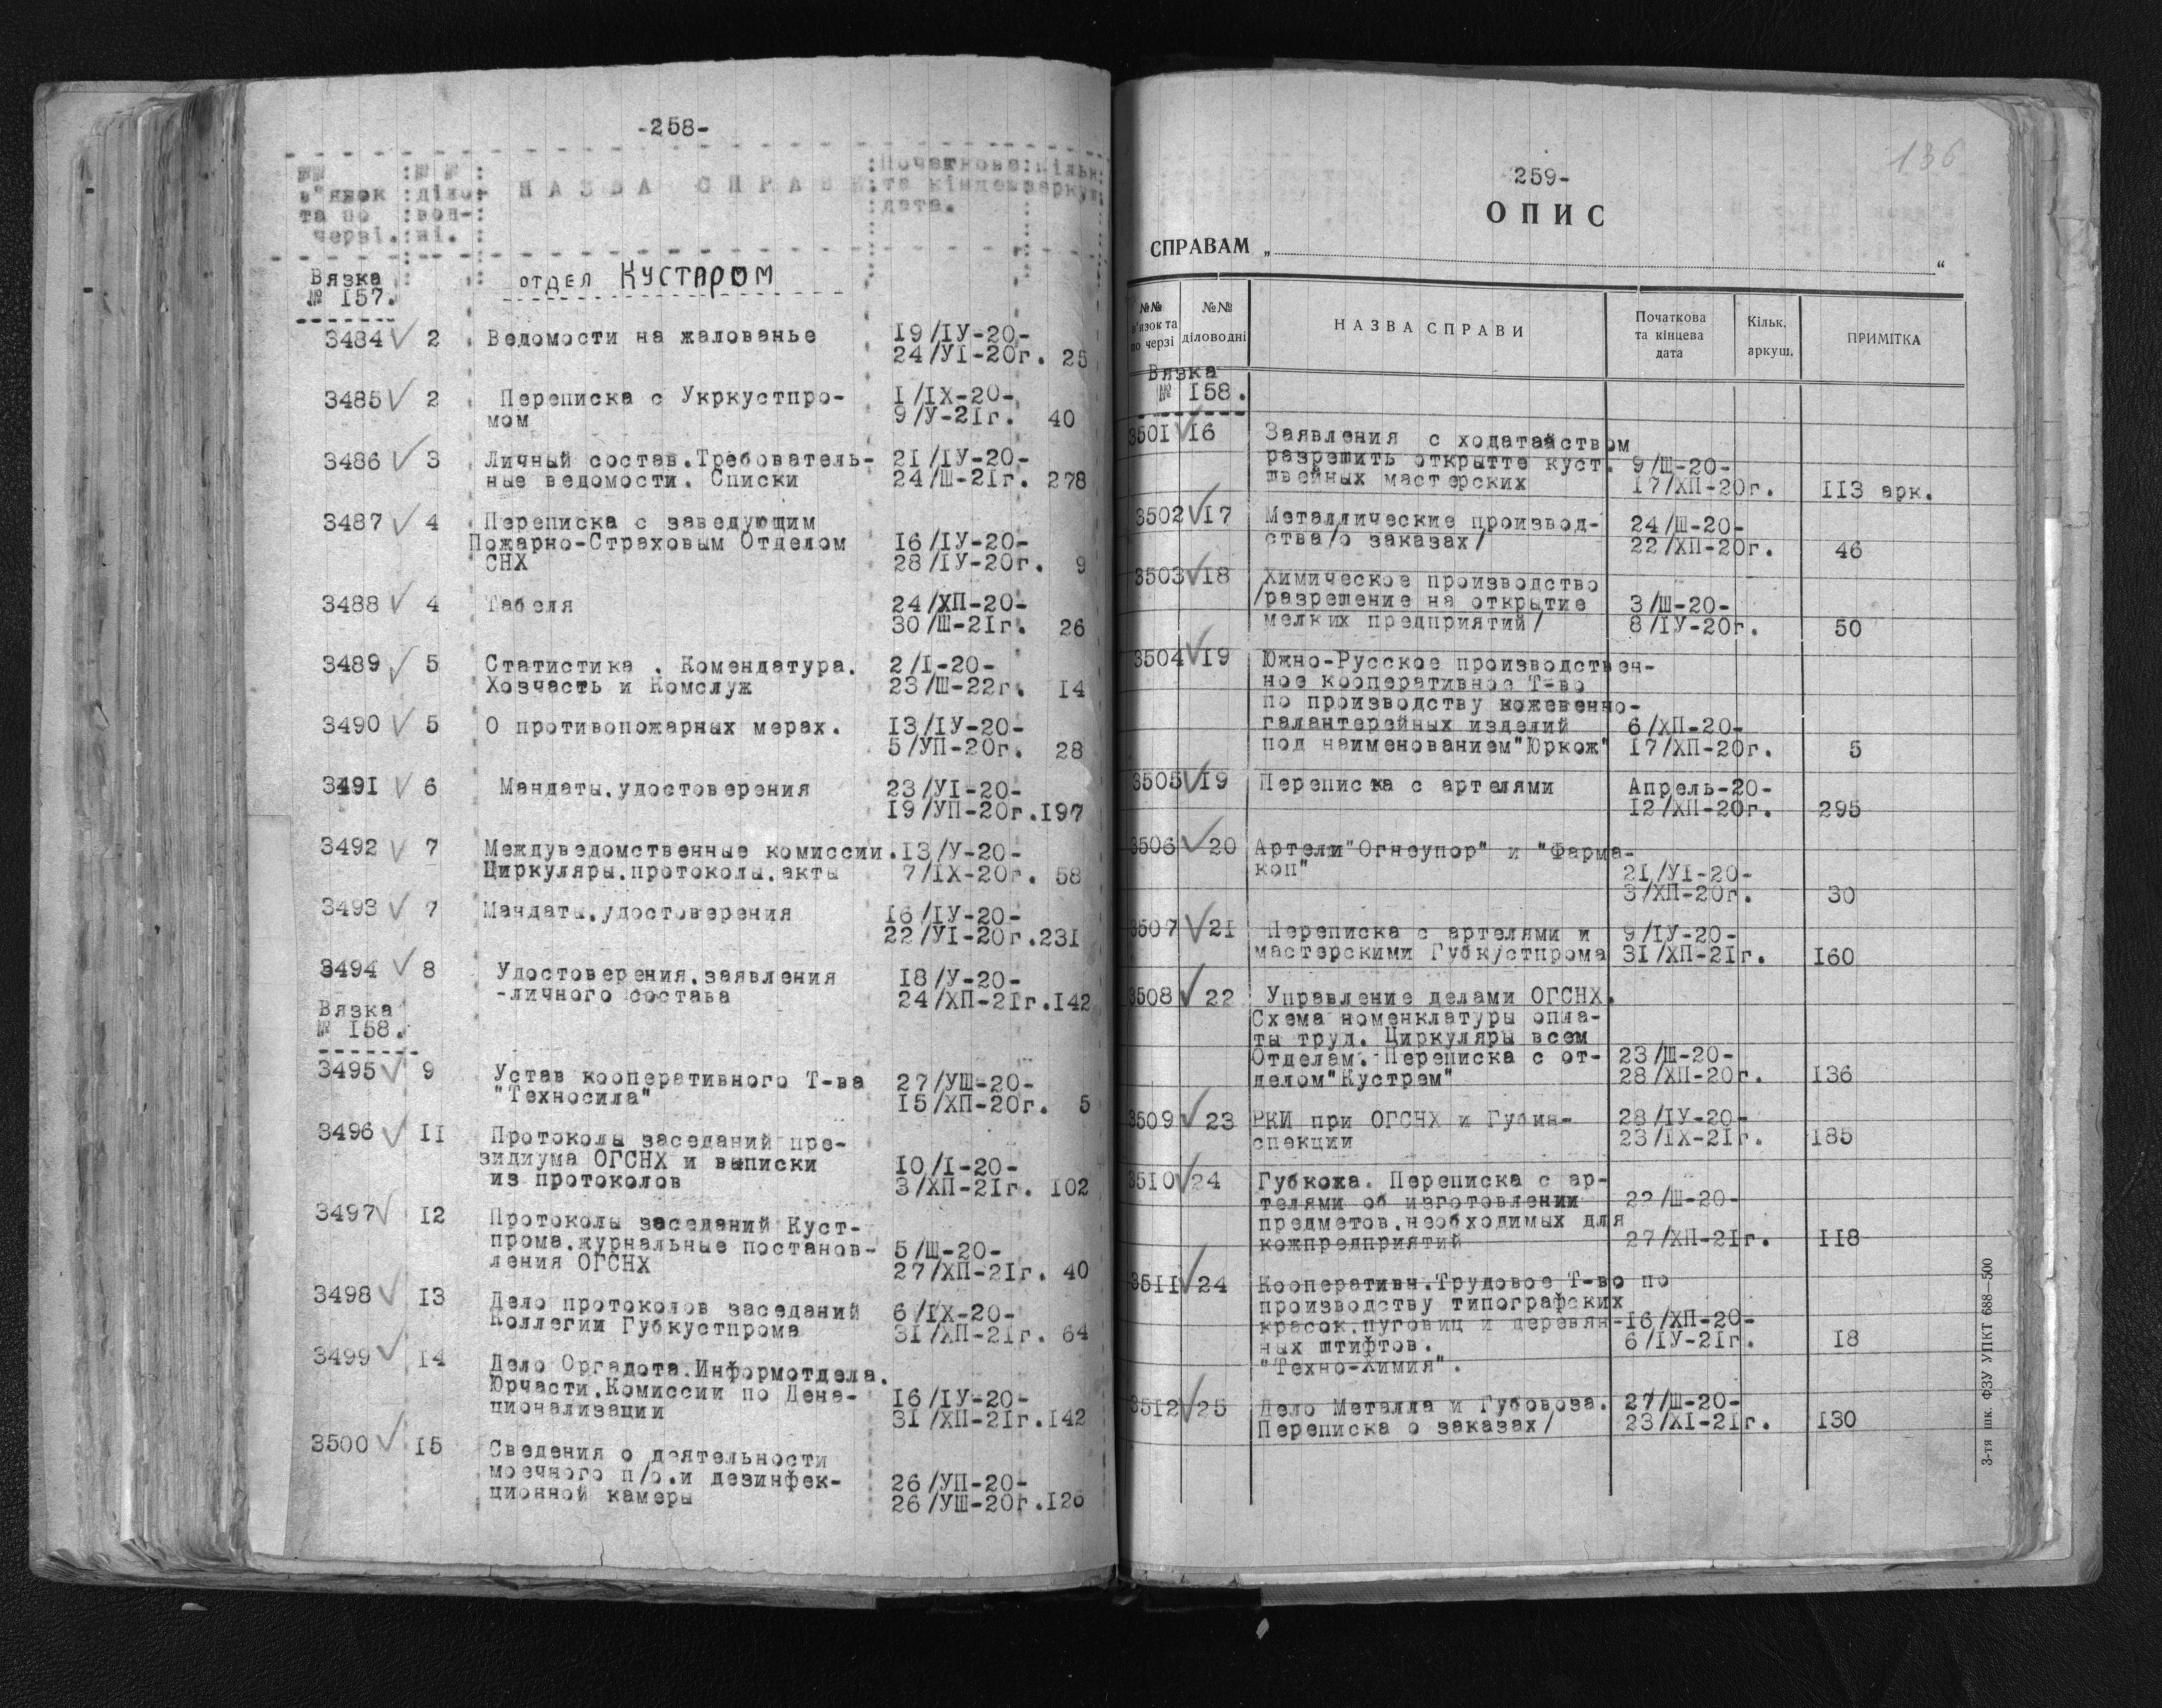 -258-
№№ :№ №: :Початкова:Кільк.
в"язок :діло-: НАЗВА СПРАВИ :та кінцев:аркуш.
та по :вод-: :дата.
черзі.:ні. :
Вязка
№ 157.
отдел Кустпром
3484 √ 2 Ведомости на жалованье 19/IУ-20-
24/УI-20г. 25
3485 √ 2 Переписка с Укркустпро- I/IX-20-
мом 9/У-21г. 40
3486 √ 3 Личный состав.Требователь- 21/IУ-20-
ные ведомости. Списки 24/Ш-21г. 278
3487 √ 4 Переписка с заведующим
Пожарно-Страховым Отделом 16/IУ-20-
СНХ 28/IУ-20г. 9
3488 √ 4 Табеля 24/ХП-20-
30/Ш-21г. 26
3489 √ 5 Статистика . Комендатура. 2/I-20-
Хозчасть и Комслуж 23/Ш-22г. 14
3490 √ 5 О противопожарных мерах. 13/IУ-20-
5/УП-20г. 28
3491 √ 6 Мандаты.удостоверения 23/УI-20-
19/УП-20г.197
3492 √ 7 Междуведомственные комиссии.13/У-20-
Циркуляры.протоколы.акты 7/IX-20г. 58
3493 √ 7 Мандаты.удостоверения 16/IУ-20-
22/УI-20г.231
3494 √ 8 Удостоверения.заявления 18/У-20-
-личного состава 24/ХП-21г.142
Вязка
№ 158.
3495 √ 9 Устав кооперативного Т-ва 27/УШ-20-
"Техносила" 15/ХП-20г. 5
3496 √ 11 Протоколы заседаний пре-
зидиума ОГСНХ и выписки 10/I-20-
из протоколов 3/ХП-21г. 102
3497 √ 12 Протоколы заседаний Куст-
прома.журнальные постанов- 5/Ш-20-
ления ОГСНХ 27/ХП-21г. 40
3498 √ 13 Дело протоколов заседаний 6/IX-20-
Коллегии Губкустпрома 31/ХП-21г. 64
3499 √ 14 Дело Оргадота.Информотдела.
Юрчасти.Комиссии по Дена- 16/IУ-20-
ционализации 31/ХП-21г.142
3500 √ 15 Сведения о деятельности
моечного п/о.и дезинфек- 26/УП-20-
ционной камеры 26/УШ-20г.126
136
259-
ОПИС
СПРАВАМ „ “
№№ в'язок та по черзі
№№ діловодні
НАЗВА СПРАВИ
Початкова та кінцева дата
Кільк. аркуш.
ПРИМІТКА
Вязка
№ 158.
3501 √ 16 Заявления с ходатайством
разрешить открытте куст. 9/Ш-20-
швейных мастерских 17/ХП-20г. 113 арк.
3502 √ 17 Металлические производ- 24/Ш-20-
ства/о заказах/ 22/ХП-20г. 46
3503 √ 18 Химическое производство
/разрешение на открытие 3/Ш-20-
мелких предприятий/ 8/IУ-20г. 50
3504 √ 19 Южно-Русское производствен-
ное кооперативное Т-во
по производству кожевенно-
галантерейных изделий 6/ХП-20-
под наименованием"Юркож" 17/ХП-20г. 5
3505 √ 19 Переписка с артелями Апрель-20-
12/ХП-20г. 295
3506 √ 20 Артели"Огнеупор" и "Фарма-
кон" 21/УI-20-
3/ХП-20г. 30
3507 √ 21 Переписка с артелями и 9/IУ-20-
мастерскими Губкустпрома 31/ХП-21г. 160
3508 √ 22 Управление делами ОГСНХ.
Схема номенклатуры опла-
ты труд. Циркуляры всем
Отделам. Переписка с от- 23/Ш-20-
делом"Кустрем" 28/ХП-20г. 136
3509 √ 23 РКИ при ОГСНХ и Губин- 28/IУ-20-
спекции 23/IX-21г. 185
3510 √ 24 Губкожа. Переписка с ар-
телями об изготовлении 22/Ш-20-
предметов.необходимых для
кожпредприятий 27/ХП-21г. 118
3511 √ 24 Кооперативн.Трудовое Т-во по
производству типографских
красок.пуговиц и деревян- 16/ХП-20-
ных штифтов. 6/IУ-21г. 18
"Техно-Химия".
3512 √ 25 Дело Металла и Губовоза. 27/Ш-20-
Переписка о заказах/ 23/XI-21г. 130
3-тя шк. ФЗУ УПКТ 688—500